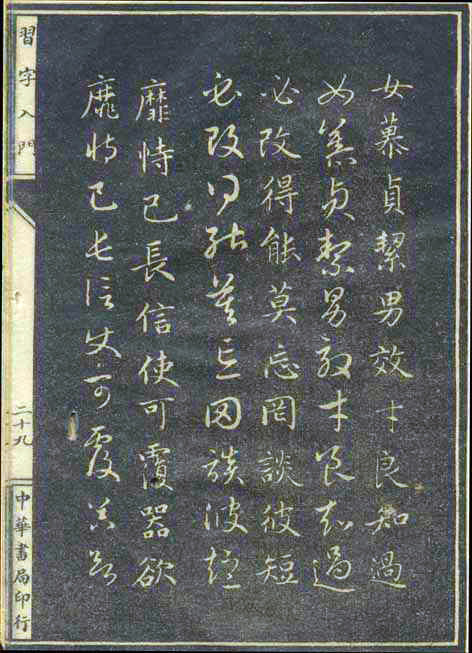 女慕貞絜男效才良知過
女慕貞絜男效才良知過
必改得能莫忘罔談彼短
必改得能莫忘罔談彼短
靡恃己長信使可覆器欲
靡恃己長信使可覆器欲
習字入門
二十九
中華書局印行